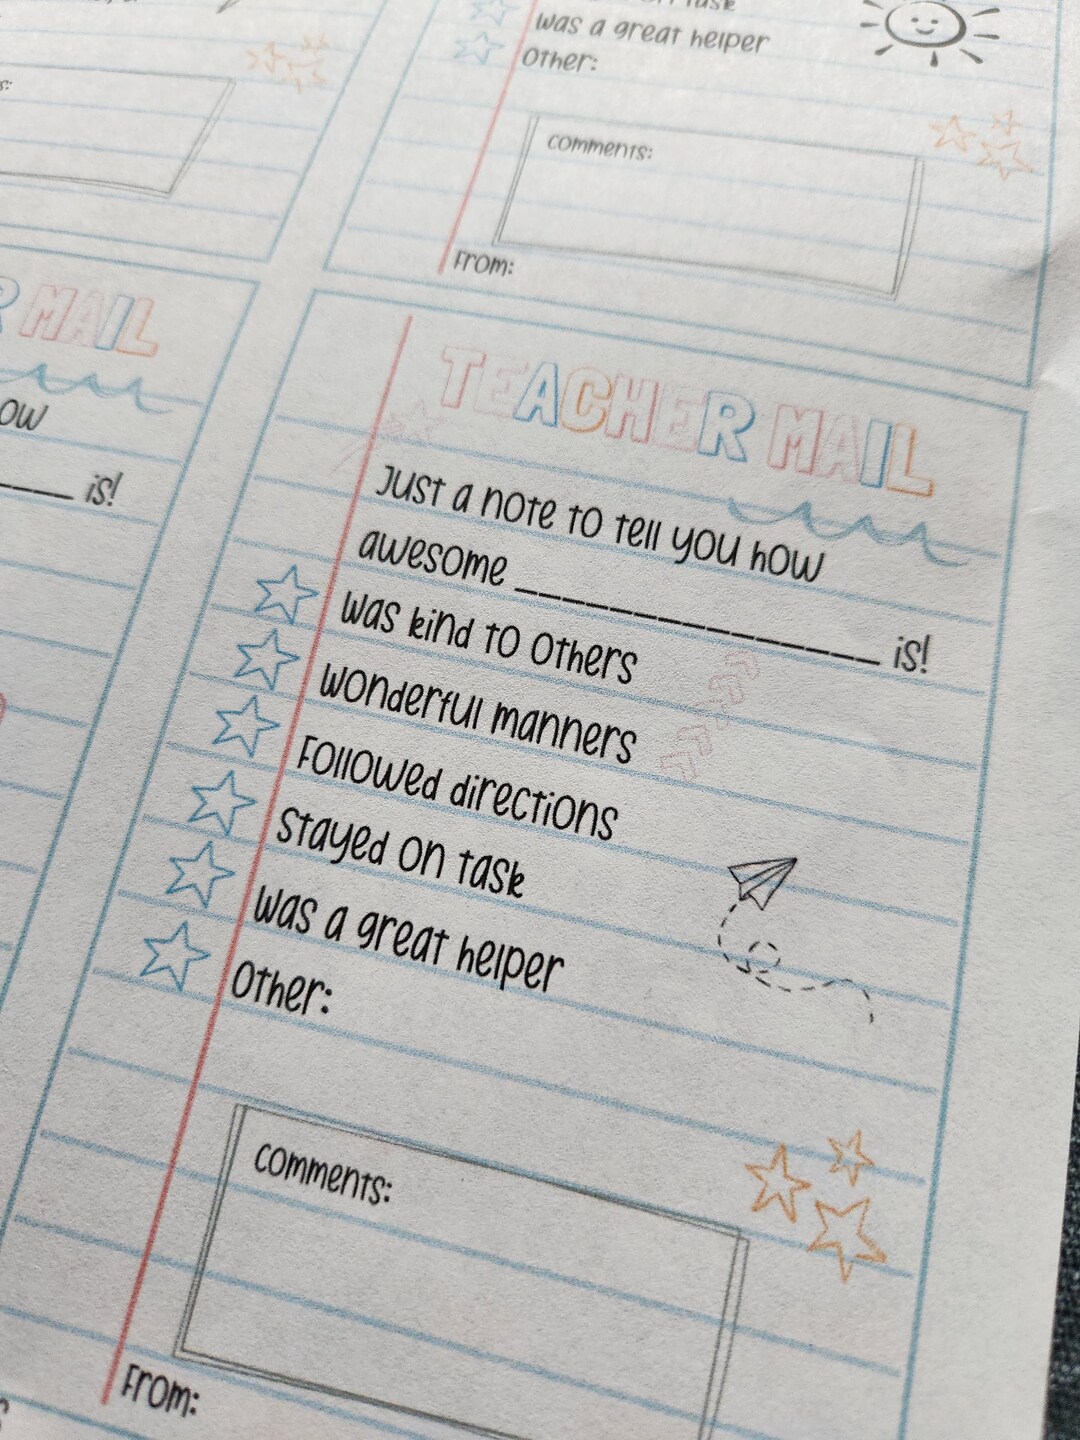 was a great helper
Other:
comments:
From:
MAIL
is!
TEACHER MAIL
Just a note to tell you how
awesome ______________ is!
was kind to others
wonderful manners
Followed directions
stayed on task
was a great helper
Other:
comments:
From: